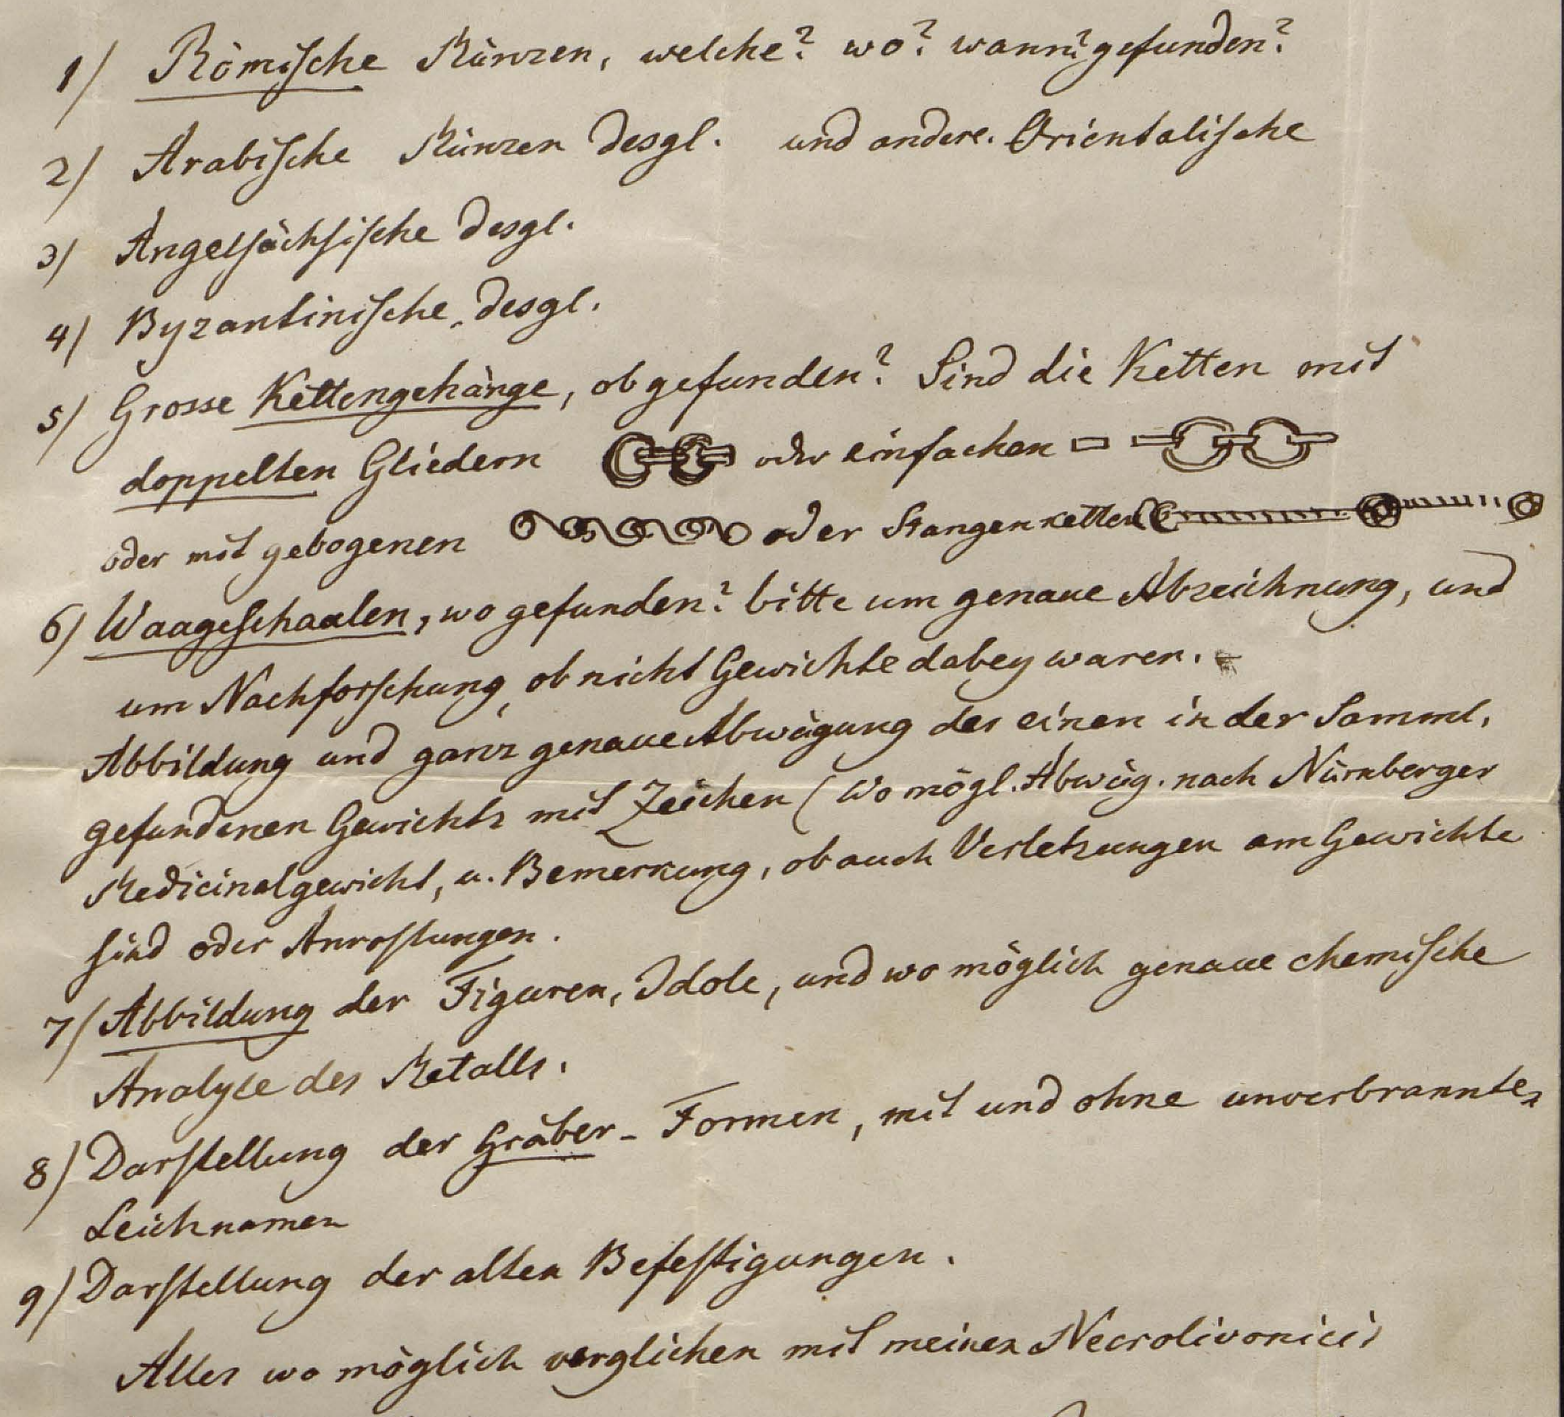 1) Römische Münzen, welche? wo? wann? gefunden?
2) Arabische Münzen desgl. und andere Orientalische
3) Angelsächsische desgl.
4) Byzantinische desgl.
5) Grosse Kettengehänge, ob gefunden? Sind die Ketten mit
doppelten Gliedern oder einfachen
oder mit gebogenen oder Stangenketten
6) Waageschaalen, wo gefunden? bitte um genaue Abzeichnung, und
um Nachforschung, ob nicht Gewichte dabey waren.
Abbildung und ganz genaue Abwägung des einen in der Samml.
gefundenen Gewichts mit Zeichen (Wo mögl. Abwäg. nach Nürnberger
Medicinalgewicht, u. Bemerkung, ob auch Verletzungen am Gewichte
sind oder Anrostungen.
7) Abbildung der Figuren, Idole, und wo möglich genaue chemische
Analyse des Metalls.
8) Darstellung der Gräber-Formen, mit und ohne unverbrannten
Leichnamen
9) Darstellung der alten Befestigungen.
Alles wo möglich verglichen mit meinen Necrolivonicis